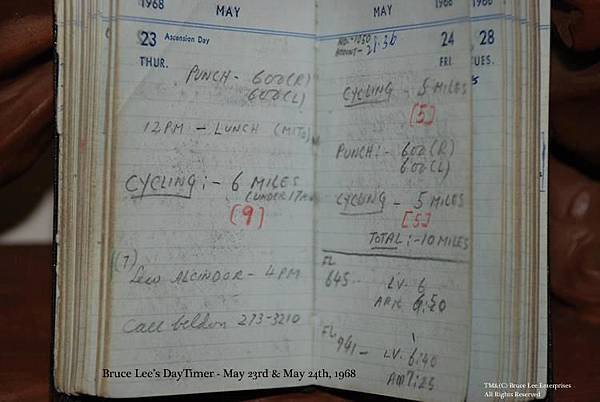 1968
MAY
23 Ascension Day
THUR.
PUNCH - 600(R)
600(L)
12PM - LUNCH (MITO)
CYCLING:- 6 MILES
(UNDER 17
[9]
(7)
Lew ALCINDOR - 4PM
Call beldon 273-3210
MAY
1968
1968
NO. - 1050
AMOUNT - 21.36
24
FRI.
28
TUES.
CYCLING - 5 MILES
[5]
PUNCH:- 600(R)
600(L)
CYCLING - 5 MILES
[5]
TOTAL:-10 MILES
FL
645- LV. 6
ARR 6:20
FL
941- LV. 6:40
AR 7:25
Bruce Lee's DayTimer - May 23rd & May 24th, 1968
TM&(C) Bruce Lee Enterprises
All Rights Reserved